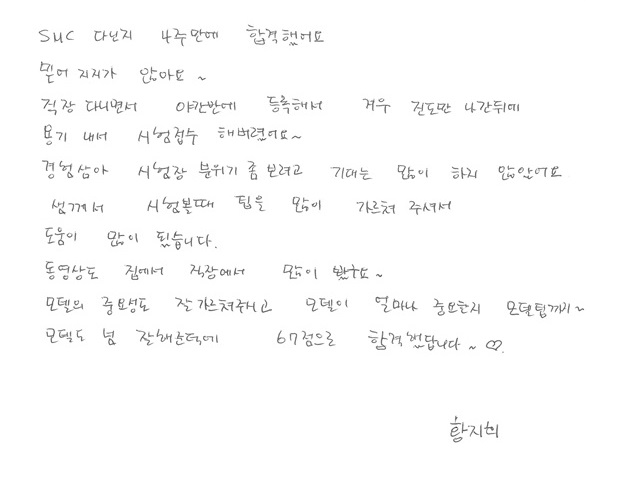 SUC 다닌지 4주만에 합격했어요
믿어 지지가 않아요 ~
직장 다니면서 야간반에 등록해서 겨우 진도만 나간뒤에
용기 내서 시험접수 해버렸어요~
경험삼아 시험장 분위기 좀 보려고 기대는 많이 하지 않았어요
샘께서 시험볼때 팁을 많이 가르쳐 주셔서
도움이 많이 됬습니다.
동영상도 집에서 직장에서 많이 봤구요~
모델의 중요성도 잘가르쳐주시고 모델이 얼마나 중요한지 모델팁까지~
모델도 넘 잘해준덕에 67점으로 합격했답니다~ ♡.
황지희